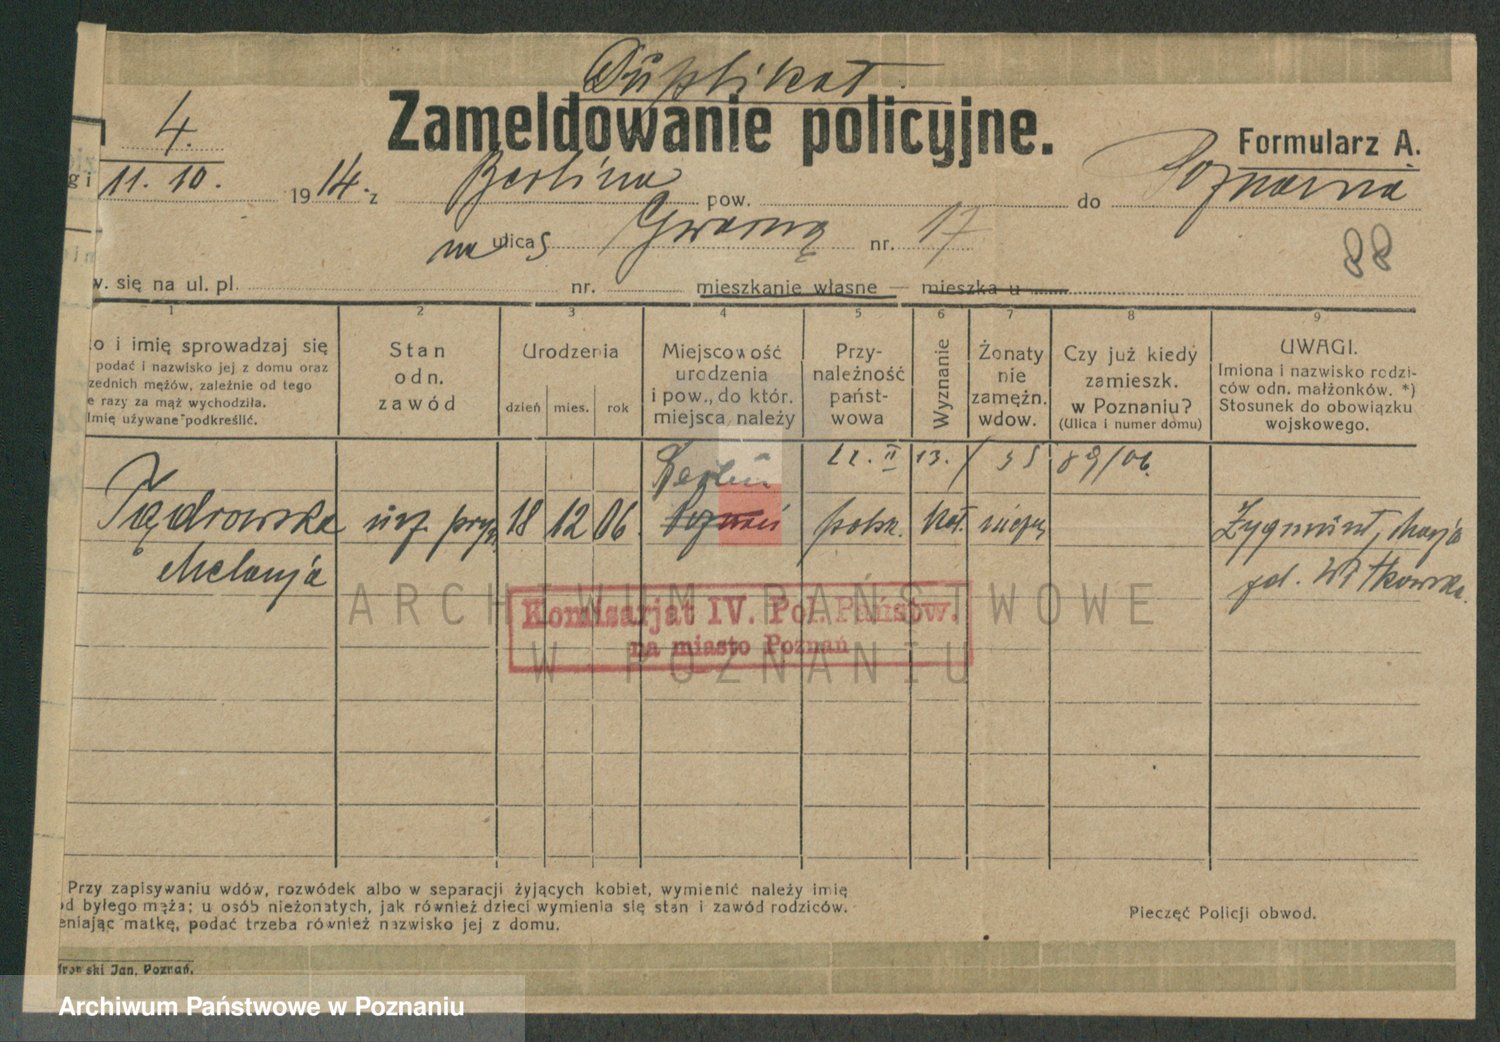 Duplikat.
Zameldowanie policyjne.
Formularz A.
4.
gi 11. 10. 1914. z Berlina pow. do Poznania
na ulicę Gwarną nr. 17
88
w. się na ul. pl. nr. mieszkanie własne — mieszka u
1 2 3 4 5 6 7 8 9
o i imię sprowadzaj się
podać i nazwisko jej z domu oraz
zednich mężów, zależnie od tego
e razy za mąż wychodziła.
Imię używane podkreślić.
Stan
odn.
zawód
Urodzenia
dzień mies. rok
Miejscowość
urodzenia
i pow., do któr.
miejsca należy
Przy-
należność
państ-
wowa
Wyznanie
Żonaty
nie
zamężn.
wdow.
Czy już kiedy
zamieszk.
w Poznaniu?
(Ulica i numer domu)
UWAGI.
Imiona i nazwisko rodzi-
ców odn. małżonków. *)
Stosunek do obowiązku
wojskowego.
Berlin 22. II 13. / 35 89/06.
urz. pryw. 18 12 06. Poznań polsk. kat. niezam. Zygmunt, Marja
Melanja zd. Witkowska.
ARCHIWUM PAŃSTWOWE
W POZNANIU
Komisarjat IV. Pol. Państw.
na miasto Poznań
Przy zapisywaniu wdów, rozwódek albo w separacji żyjących kobiet, wymienić należy imię
od byłego męża; u osób nieżonatych, jak również dzieci wymienia się stan i zawód rodziców.
eniając matkę, podać trzeba również nazwisko jej z domu.
Pieczęć Policji obwod.
ski Jan, Poznań.
Archiwum Państwowe w Poznaniu